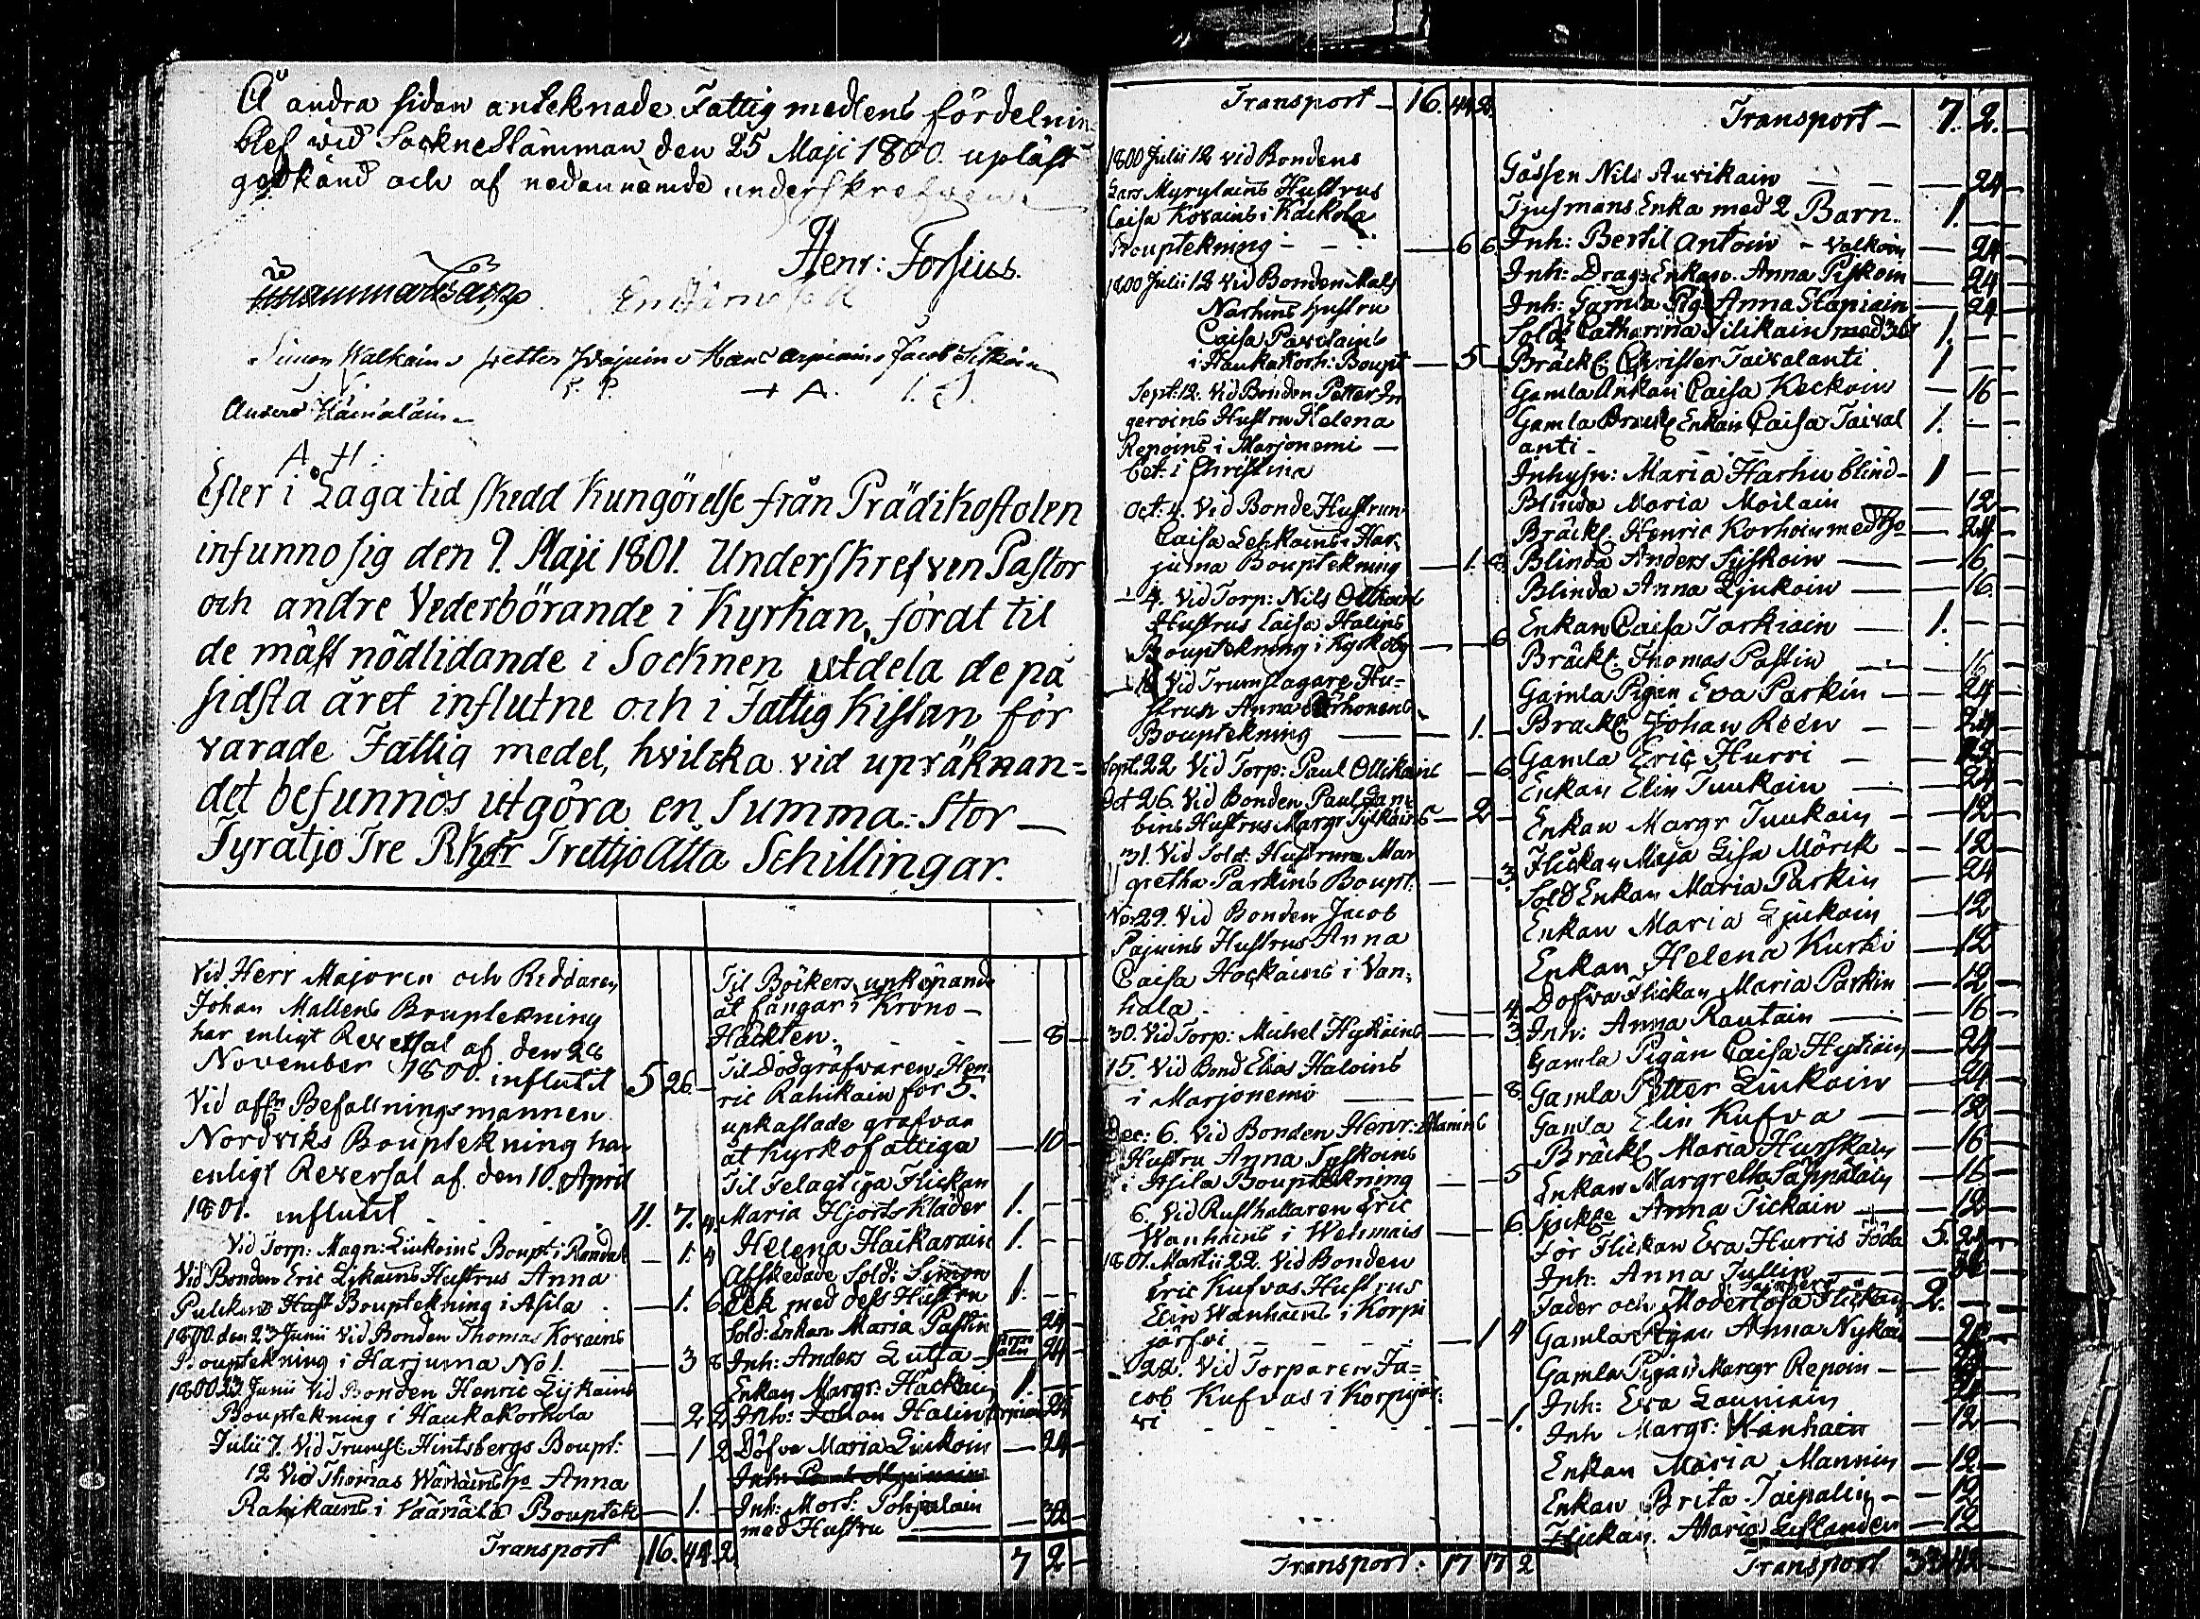 Å andra sidan anteknade Fattig medlens fördelnin
blef wid Socknestämman den 25 Maji 1800. upläst
godkänd och af nedannämde underskrefven.
Henr: Forsius.
Simon Walkain Petter Hans Jacob
A. I. S.
Anders
A H:
Efter i Laga tid skedd Kungörelse från Prädikostolen
infunno sig den 9. Maji 1801. Underskrefven Pastor
och andre Vederbörande i Kyrkan, fördt til
de mäst nödlidande i Socknen utdela de på
sidsta året influtne och i Fattig Kistan för
varade Fattig medel, hvilcka vid upräknan=
det befunnos utgöra en Summa: Stor
Fyratjo Tre Rksdr Trettjo Åtta Schillingar.
Vid Herr Majoren och Riddaren
Johan Mallens Bouptekning
har enligt Reversal af den 28
November 1800. influtit 5 26 -
Vid aff:n Befallningsmannen
Nordviks Bouptekning har
enligt Reversal af den 10. April
1801. influtit 11. 7. 4
Vid Torp: Magn: Liukoins Boupt: i Randal — 1. 4
Vid Bonden Eric Lijkains Hustrus Anna
Pulckins Bouptekning i Asila — 1. 6
1800. den 23 Junii Vid Bonden Thomas Kovains
Bouptekning i Harjuma No 1. — 3 8
1800 23 Junii Vid Bonden Henric Lijkains
Bouptekning i Haukakorhola — 2 2
Julii 7. Vid Trumsl: Hintsbergs Boupt: — 1 2
12 Vid Thomas Wänäins Ho Anna
Rahikains i Väänälä Bouptek — 1. -
Transport 16. 44 2
Til Böckers unköpande
åt fångar i Krono-
Häckten. — 8 -
Til Dödgräfvaren Hen
ric Rahikain för 5.
upkastade grafvar
åt Kyrkofattiga — 10 -
Til Felagtiga Flickan
Maria Hjorts Kläder 1. - -
Helena Haikarain 1. - -
Afskedade Sold: Simon
Eek med dess Hustru 1. - -
Sold: Enkan Maria Pastin 24 -
Inh: Anders Lutta 24 -
Enkan Margr: Hackain 1 -
Inh: Johan Halin 24
Döfva Maria Liukoin — 24 -
Inh: Mort: Pohjalain
med Hustru — 32 -
7 2 -
Transport — 16. 44 2.
1800 Julii 12 vid Bondens
Lars Myrylains Hustrus
Caisa Kovains i Kackola
Bouptekning — 6 6
1800 Julii 12 Vid Bonden Mats
Närhins Hustru
Caisa Pavilains
i Haukakorh: Boupt — 5 -
Sept: 12. Vid Bonden Petter In
geroins Hustru Helena
Repoins i Marjonemi —
bet: i Christina
Oct: 4. Vid Bonde Hustrun
Caisa Lehkoins Har
juma Bouptekning — 1. 8
— 4. Vid Torp: Nils Ollikains
Hustrus Caisa Halins
Bouptekning i Kyrkoby — — 6
— 18 Vid Trumslagare Hu=
strun Anna Örhonens
Bouptekning — 1. -
Sept: 22 Vid Torp: Paul Ollikains — 6
Oct 26. Vid Bonden Paul Lam
bins Hustrus Margr Tylkains — 2 -
31. Vid Sold: Hustrun Mar
gretha Parkins Boupt: — — 3.
Nov 29. Vid Bonden Jacob
Pajuins Hustrus Anna
Caisa Hockains i Van
hala — 4
30. Vid Torp: Michel Hytiäins — 3
15. Vid Bond Elias Haloins
i Marjonemi — — 8
Dec: 6. Vid Bonden Henr: Manins
Hustru Anna Tyskoins
i Asila Bouptekning — — 5
6. Vid Rusthållaren Eric
Wanhains i Wehmais — — 6.
1801. Martii 22. Vid Bonden
Eric Kufvas Hustrus
Elin Wanhains i Korpi
järfvi — 1 4
22. Vid Torparen Ja=
cob Kufvas i Korpijär
vi — 1.
Transport: 17 17 2
Transport — 7. 2. -
Gossen Nils Auvikain — 24 -
Tjusmans Enka med 2 Barn. 1. -
Inh: Bertil Antoin - Valkoin — 24 -
Inh: Drag: Enkan. Anna Pyskoin — 24 -
Inh: Gamla Pig: Anna Stapiain — 24 -
Sold Catharina Tilikain med 3 b 1. -
Bräckl Christer Taivalanti 1 -
Gamla Enkan Caisa Keckoin — 16 -
Gamla Bräckl Enkan Caisa Taival
anti 1. -
Inhysn: Maria Harhu blind- 1 -
Blinda Maria Moilain — 12 -
Bräckl Henric Korhoin med Ho — 24 -
Blinda Anders Tyskoin — 16 -
Blinda Anna Ljukoin — 16 -
Enkan Caisa Torkiain — 1. -
Bräckl: Thomas Pastin — 16 -
Gamla Pigan Eva Parkin — 24 -
Bräckl Johan Reen — 24 -
Gamla Eric Hurri — 24 -
Enkan Elin Tuukain — 24 -
Enkan Margr Tuukain — 12 -
Flickan Maja Lisa Mörck — 12 -
Sold Enkan Maria Parkin — 24
Enkan Maria Ljukain — 12 -
Enkan Helena Kurki — 12 -
Döfva Flickan Maria Parkin — 12 -
Inh: Anna Rautain — 16 -
Gamla Pigan Caisa Hytiäin — 24 -
Gamla Petter Liukoin — 24 -
Gamla Elin Kufva — 12 -
Bräckl Maria Hurskain — 16 -
Enkan Margretha Säppäläin — 16 -
Sjuklge Anna Tickain — 12 -
För Flickan Eva Hurris Föda 5. 24 -
Inh: Anna Tullin
Fader och Moderlösa Flickan 2. - -
Gamla Pigan Anna Nykän
Gamla Pigan Margr Repoin —
Inh: Eva Launiain
Inh Margr: Wanhain — 12 -
Enkan Maria Mannin — 12 -
Enkan Brita Taipalin — 12
Flickan Maria Lustanden — 12 -
Transport 33 42 -